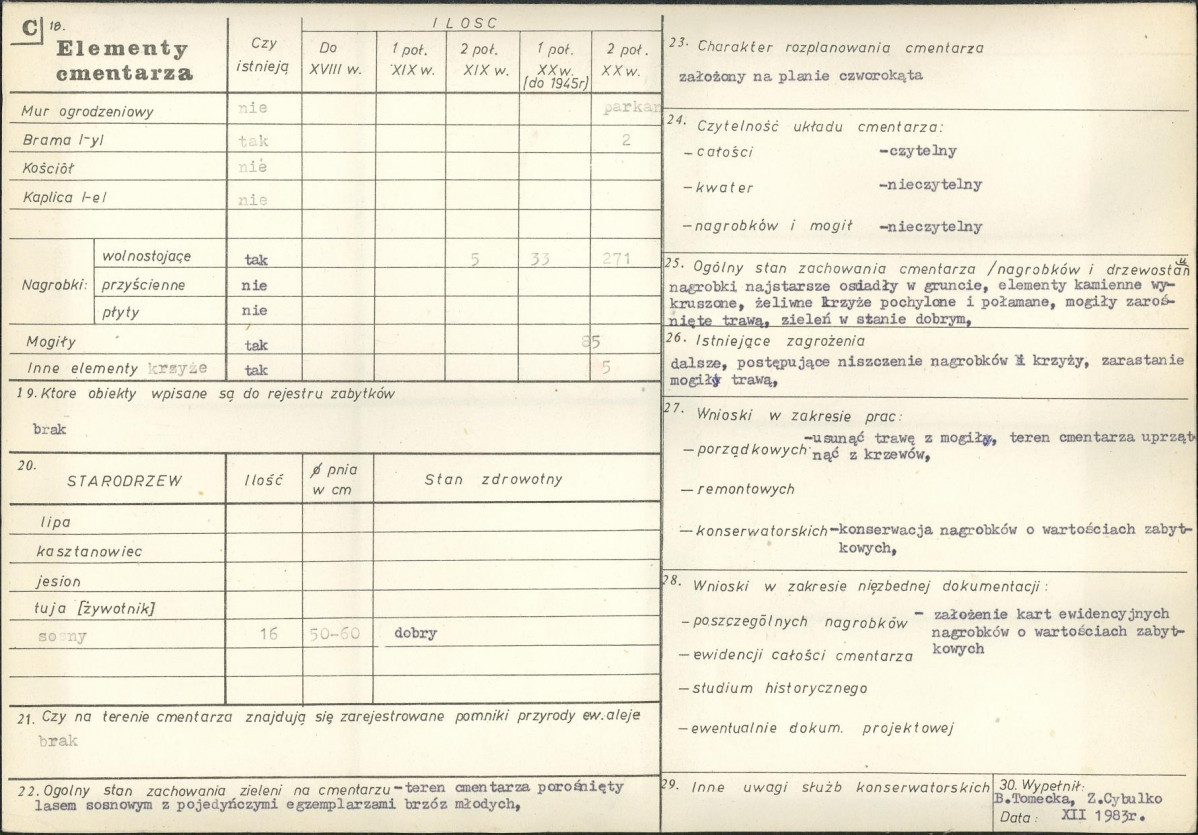 C 18.
Elementy
cmentarza
Czy
istnieją
ILOSC
Do
XVIII w.
1 poł.
XIX w.
2 poł.
XIX w.
1 poł.
XX w.
(do 1945r)
2 poł.
XX w.
Mur ogrodzeniowy nie parkan
Brama l-yl tak 2
Kościół nie
Kaplica l-el nie
Nagrobki: wolnostojące tak 5 33 271
przyścienne nie
płyty nie
Mogiły tak 85
Inne elementy krzyże tak 5
19. Ktore obiekty wpisane są do rejestru zabytków
brak
20.
STARODRZEW Ilość ø pnia
w cm Stan zdrowotny
lipa
kasztanowiec
jesion
tuja [żywotnik]
sosny 16 50-60 dobry
21. Czy na terenie cmentarza znajdują się zarejestrowane pomniki przyrody ew. aleje
brak
22. Ogolny stan zachowania zieleni na cmentarzu -teren cmentarza porośnięty
lasem sosnowym z pojedyńczymi egzemplarzami brzóz młodych,
23. Charakter rozplanowania cmentarza
założony na planie czworokąta
24. Czytelność układu cmentarza:
- całości -czytelny
- kwater -nieczytelny
- nagrobków i mogił -nieczytelny
25. Ogólny stan zachowania cmentarza /nagrobków i drzewostanu
nagrobki najstarsze osiadły w gruncie, elementy kamienne wy-
kruszone, żeliwne krzyże pochylone i połamane, mogiły zaroś-
nięte trawą, zieleń w stanie dobrym,
26. Istniejące zagrożenia
dalsze, postępujące niszczenie nagrobków i krzyży, zarastanie
mogiły trawą,
27. Wnioski w zakresie prac:
- porządkowych -usunąć trawę z mogiły, teren cmentarza uprząt
nąć z krzewów,
- remontowych
- konserwatorskich -konserwacja nagrobków o wartościach zabyt-
kowych,
28. Wnioski w zakresie nięzbednej dokumentacji:
- poszczególnych nagrobków - założenie kart ewidencyjnych
nagrobków o wartościach zabyt-
kowych
- ewidencji całości cmentarza
- studium historycznego
- ewentualnie dokum. projektowej
29. Inne uwagi służb konserwatorskich
30. Wypełnił:
B.Tomecka, Z.Cybulko
Data: XII 1983r.